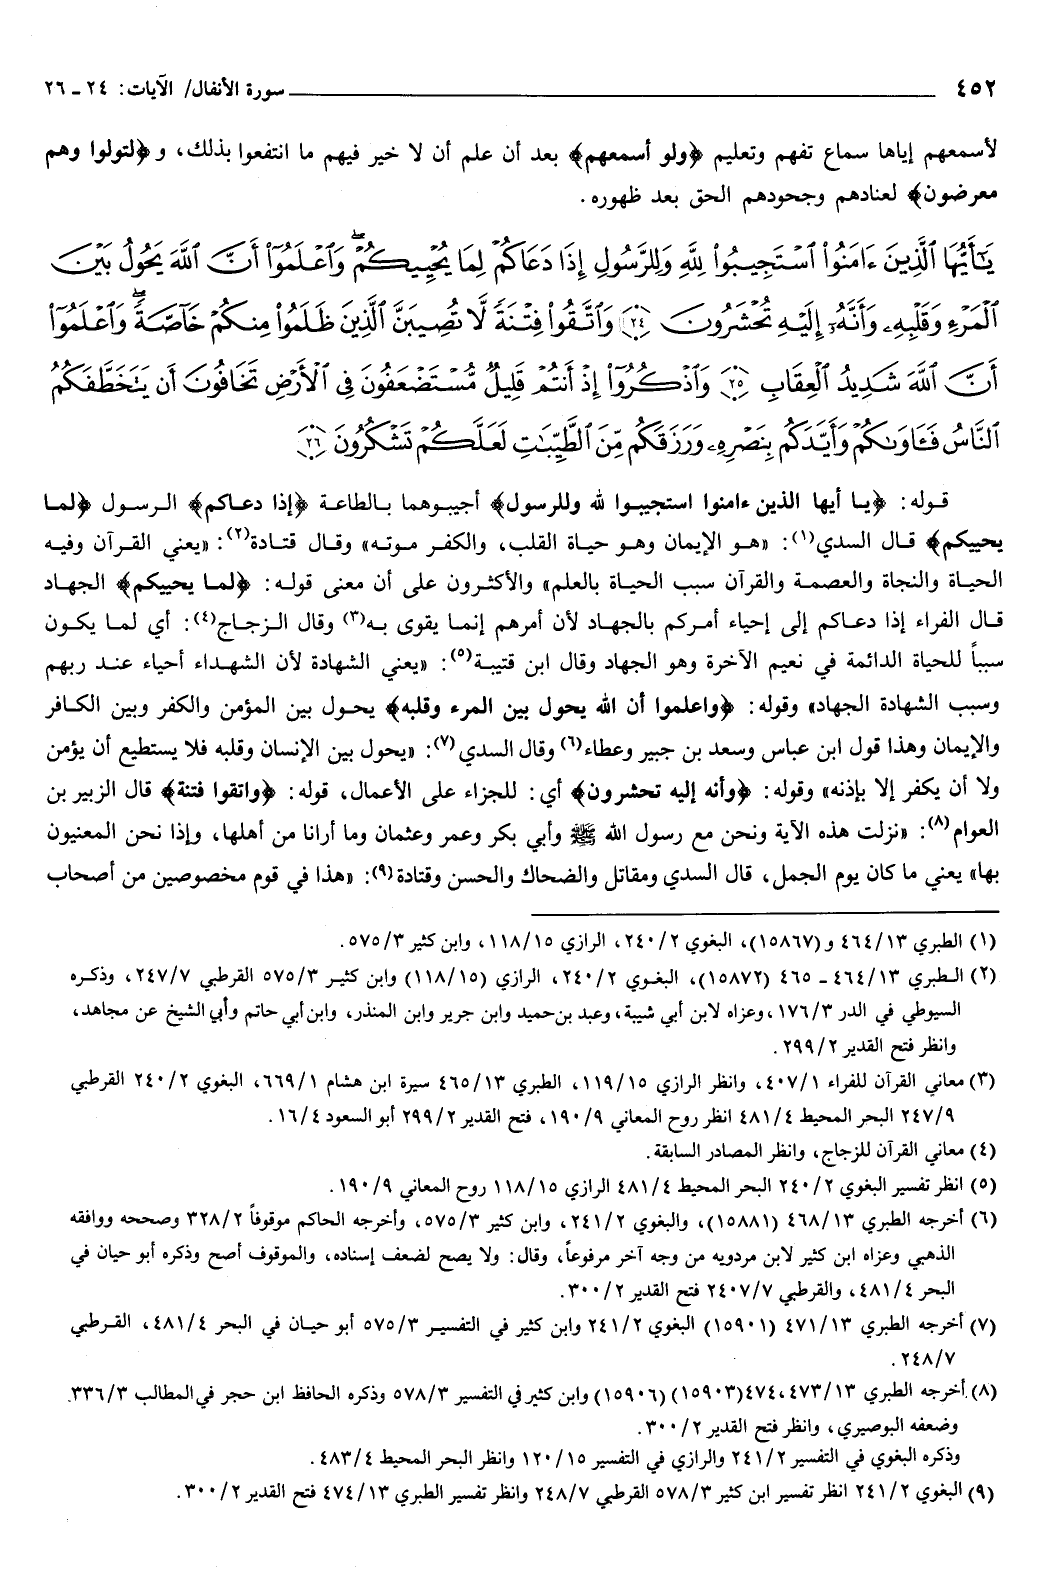 ٤٥٢ ــــــــ سورة الأنفال/ الآيات: ٢٤ ـ ٢٦
لأسمعهم إياها سماع تفهم وتعليم ﴿ولو أسمعهم﴾ بعد أن علم أن لا خير فيهم ما انتفعوا بذلك، و﴿لتولوا وهم
معرضون﴾ لعنادهم وجحودهم الحق بعد ظهوره.
يَٰٓأَيُّهَا ٱلَّذِينَ ءَامَنُوا۟ ٱسْتَجِيبُوا۟ لِلَّهِ وَلِلرَّسُولِ إِذَا دَعَاكُمْ لِمَا يُحْيِيكُمْ ۖ وَٱعْلَمُوٓا۟ أَنَّ ٱللَّهَ يَحُولُ بَيْنَ
ٱلْمَرْءِ وَقَلْبِهِۦ وَأَنَّهُۥٓ إِلَيْهِ تُحْشَرُونَ ﴿٢٤﴾ وَٱتَّقُوا۟ فِتْنَةً لَّا تُصِيبَنَّ ٱلَّذِينَ ظَلَمُوا۟ مِنكُمْ خَآصَّةً ۖ وَٱعْلَمُوٓا۟
أَنَّ ٱللَّهَ شَدِيدُ ٱلْعِقَابِ ﴿٢٥﴾ وَٱذْكُرُوٓا۟ إِذْ أَنتُمْ قَلِيلٌ مُّسْتَضْعَفُونَ فِى ٱلْأَرْضِ تَخَافُونَ أَن يَتَخَطَّفَكُمُ
ٱلنَّاسُ فَـَٔاوَىٰكُمْ وَأَيَّدَكُم بِنَصْرِهِۦ وَرَزَقَكُم مِّنَ ٱلطَّيِّبَٰتِ لَعَلَّكُمْ تَشْكُرُونَ ﴿٢٦﴾
قوله: ﴿يا أيها الذين ءامنوا استجيبوا لله وللرسول﴾ أجيبوهما بالطاعة ﴿إذا دعاكم﴾ الرسول ﴿لما
يحييكم﴾ قال السدي(١): «هو الإيمان وهو حياة القلب، والكفر موته» وقال قتادة(٢): «يعني القرآن وفيه
الحياة والنجاة والعصمة والقرآن سبب الحياة بالعلم» والأكثرون على أن معنى قوله: ﴿لما يحييكم﴾ الجهاد
قال الفراء إذا دعاكم إلى إحياء أمركم بالجهاد لأن أمرهم إنما يقوى به(٣) وقال الزجاج(٤): أي لما يكون
سبباً للحياة الدائمة في نعيم الآخرة وهو الجهاد وقال ابن قتيبة(٥): «يعني الشهادة لأن الشهداء أحياء عند ربهم
وسبب الشهادة الجهاد» وقوله: ﴿واعلموا أن الله يحول بين المرء وقلبه﴾ يحول بين المؤمن والكفر وبين الكافر
والإيمان وهذا قول ابن عباس وسعد بن جبير وعطاء(٦) وقال السدي(٧): «يحول بين الإنسان وقلبه فلا يستطيع أن يؤمن
ولا أن يكفر إلا بإذنه» وقوله: ﴿وأنه إليه تحشرون﴾ أي: للجزاء على الأعمال، قوله: ﴿واتقوا فتنة﴾ قال الزبير بن
العوام(٨): «نزلت هذه الآية ونحن مع رسول الله ﷺ وأبي بكر وعمر وعثمان وما أرانا من أهلها، وإذا نحن المعنيون
بها» يعني ما كان يوم الجمل، قال السدي ومقاتل والضحاك والحسن وقتادة(٩): «هذا في قوم مخصوصين من أصحاب
(١) الطبري ٤٦٤/١٣ و(١٥٨٦٧)، البغوي ٢٤٠/٢، الرازي ١١٨/١٥، وابن كثير ٥٧٥/٣.
(٢) الطبري ٤٦٤/١٣ ـ ٤٦٥ (١٥٨٧٢)، البغوي ٢٤٠/٢، الرازي (١١٨/١٥) وابن كثير ٥٧٥/٣ القرطبي ٢٤٧/٧، وذكره
السيوطي في الدر ١٧٦/٣، وعزاه لابن أبي شيبة، وعبد بن حميد وابن جرير وابن المنذر، وابن أبي حاتم وأبي الشيخ عن مجاهد،
وانظر فتح القدير ٢٩٩/٢.
(٣) معاني القرآن للفراء ٤٠٧/١، وانظر الرازي ١١٩/١٥، الطبري ٤٦٥/١٣ سيرة ابن هشام ٦٦٩/١، البغوي ٢٤٠/٢ القرطبي
٢٤٧/٩ البحر المحيط ٤٨١/٤ انظر روح المعاني ١٩٠/٩، فتح القدير ٢٩٩/٢ أبو السعود ١٦/٤.
(٤) معاني القرآن للزجاج، وانظر المصادر السابقة.
(٥) انظر تفسير البغوي ٢٤٠/٢ البحر المحيط ٤٨١/٤ الرازي ١١٨/١٥ روح المعاني ١٩٠/٩.
(٦) أخرجه الطبري ٤٦٨/١٣ (١٥٨٨١)، والبغوي ٢٤١/٢، وابن كثير ٥٧٥/٣، وأخرجه الحاكم موقوفاً ٣٢٨/٢ وصححه ووافقه
الذهبي وعزاه ابن كثير لابن مردويه من وجه آخر مرفوعاً، وقال: ولا يصح لضعف إسناده، والموقوف أصح وذكره أبو حيان في
البحر ٤٨١/٤، والقرطبي ٢٤٠٧/٧ فتح القدير ٣٠٠/٢.
(٧) أخرجه الطبري ٤٧١/١٣ (١٥٩٠١) البغوي ٢٤١/٢ وابن كثير في التفسير ٥٧٥/٣ أبو حيان في البحر ٤٨١/٤، القرطبي
٢٤٨/٧.
(٨) أخرجه الطبري ٤٧٣/١٣، ٤٧٤(١٥٩٠٣) (١٥٩٠٦) وابن كثير في التفسير ٥٧٨/٣ وذكره الحافظ ابن حجر في المطالب ٣٣٦/٣.
وضعفه البوصيري، وانظر فتح القدير ٣٠٠/٢.
وذكره البغوي في التفسير ٢٤١/٢ والرازي في التفسير ١٢٠/١٥ وانظر البحر المحيط ٤٨٣/٤.
(٩) البغوي ٢٤١/٢ انظر تفسير ابن كثير ٥٧٨/٣ القرطبي ٢٤٨/٧ وانظر تفسير الطبري ٤٧٤/١٣ فتح القدير ٣٠٠/٢.